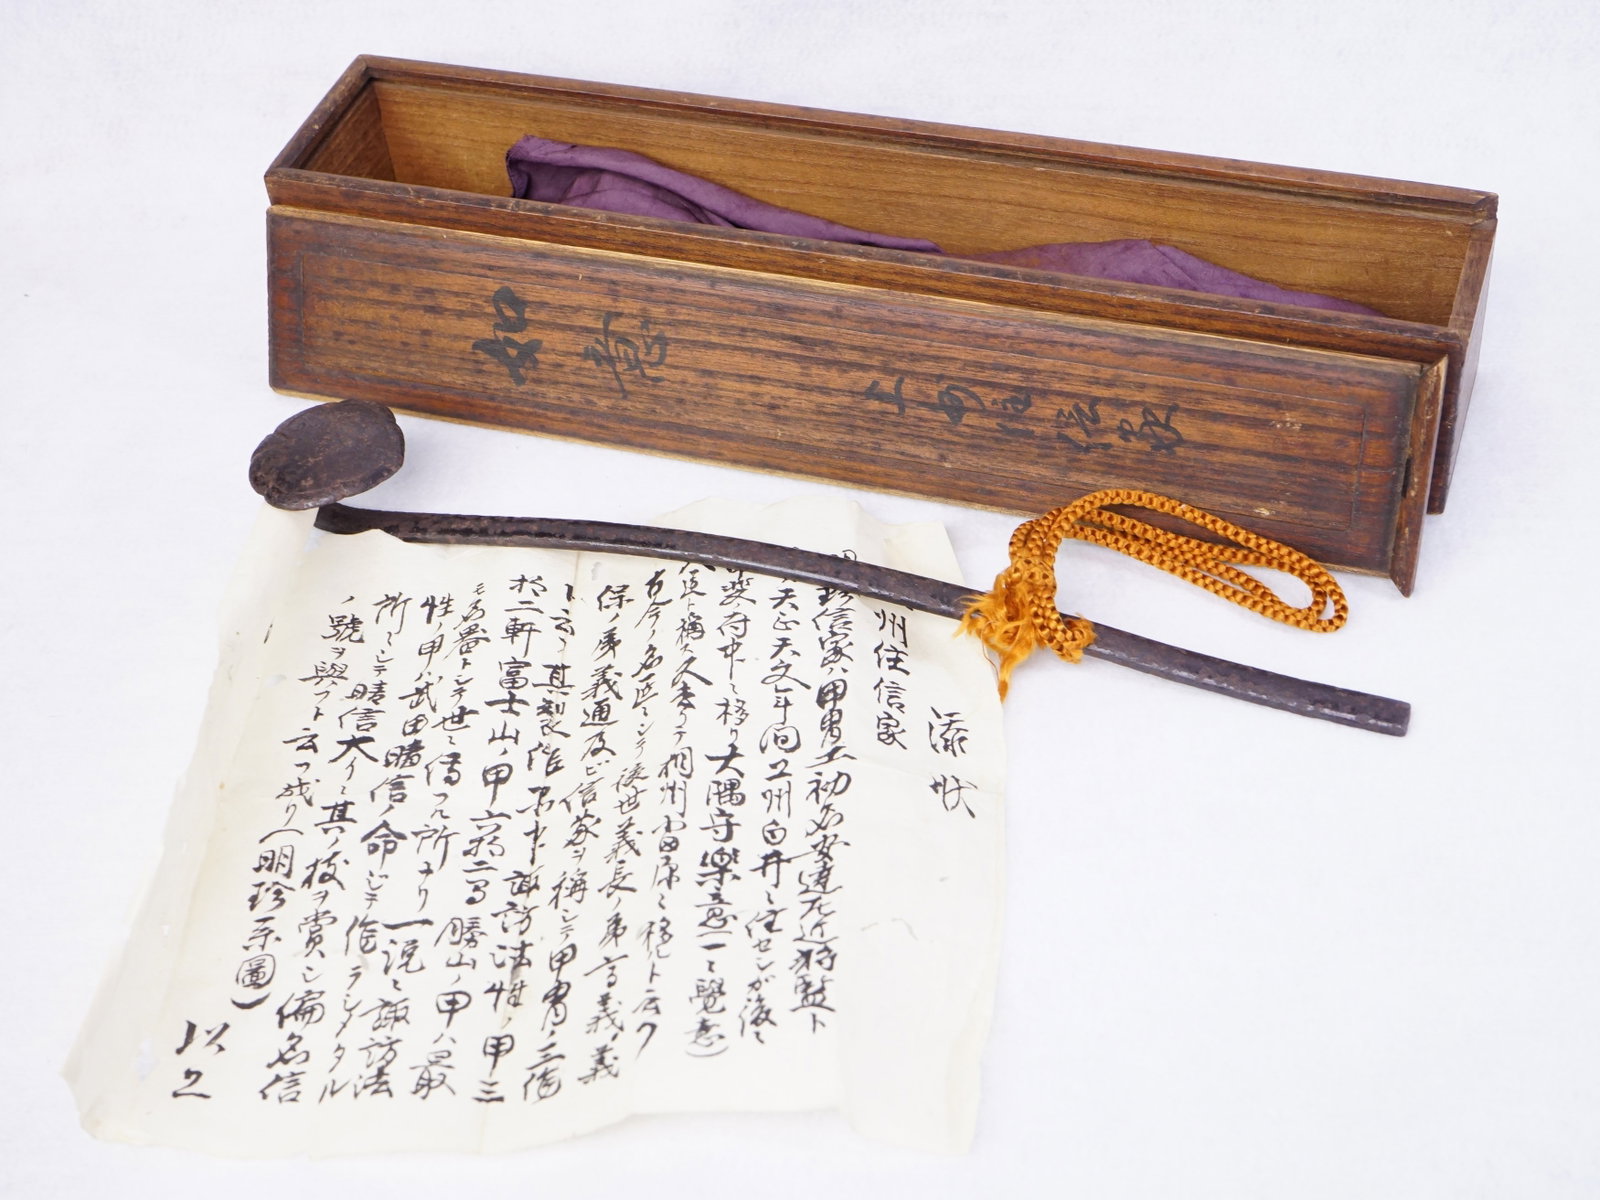 如意
上州住信家
添状
州住信家
珍信家ハ甲冑工初名安達左近将監ト
天正天文年间上州白井ニ住センガ後ニ
斐ノ府中ニ移リ大隅守樂意一ニ覺意)
ト稱ス久志クテ相州小田原ニ移ルト云フ
古今ノ名匠ニシテ後世義長ノ弟高義ノ義
保ノ弟義通及ビ信家ヲ稱シテ甲冑ノ三傑
ト云フ其製作品中諏訪法性ノ甲三
枚二軒富士山ノ甲六拾二間勝山ノ甲ハ最
モ名器トシテ世ニ傳フル所ナリ一説ニ諏訪法
性ノ甲ハ武田晴信ノ命ジテ作ラシメタル
所ニシテ晴信大イニ其ノ技ヲ賞シ偏名信
ノ號ヲ與フト云フ成リ(明珍系圖)
以上